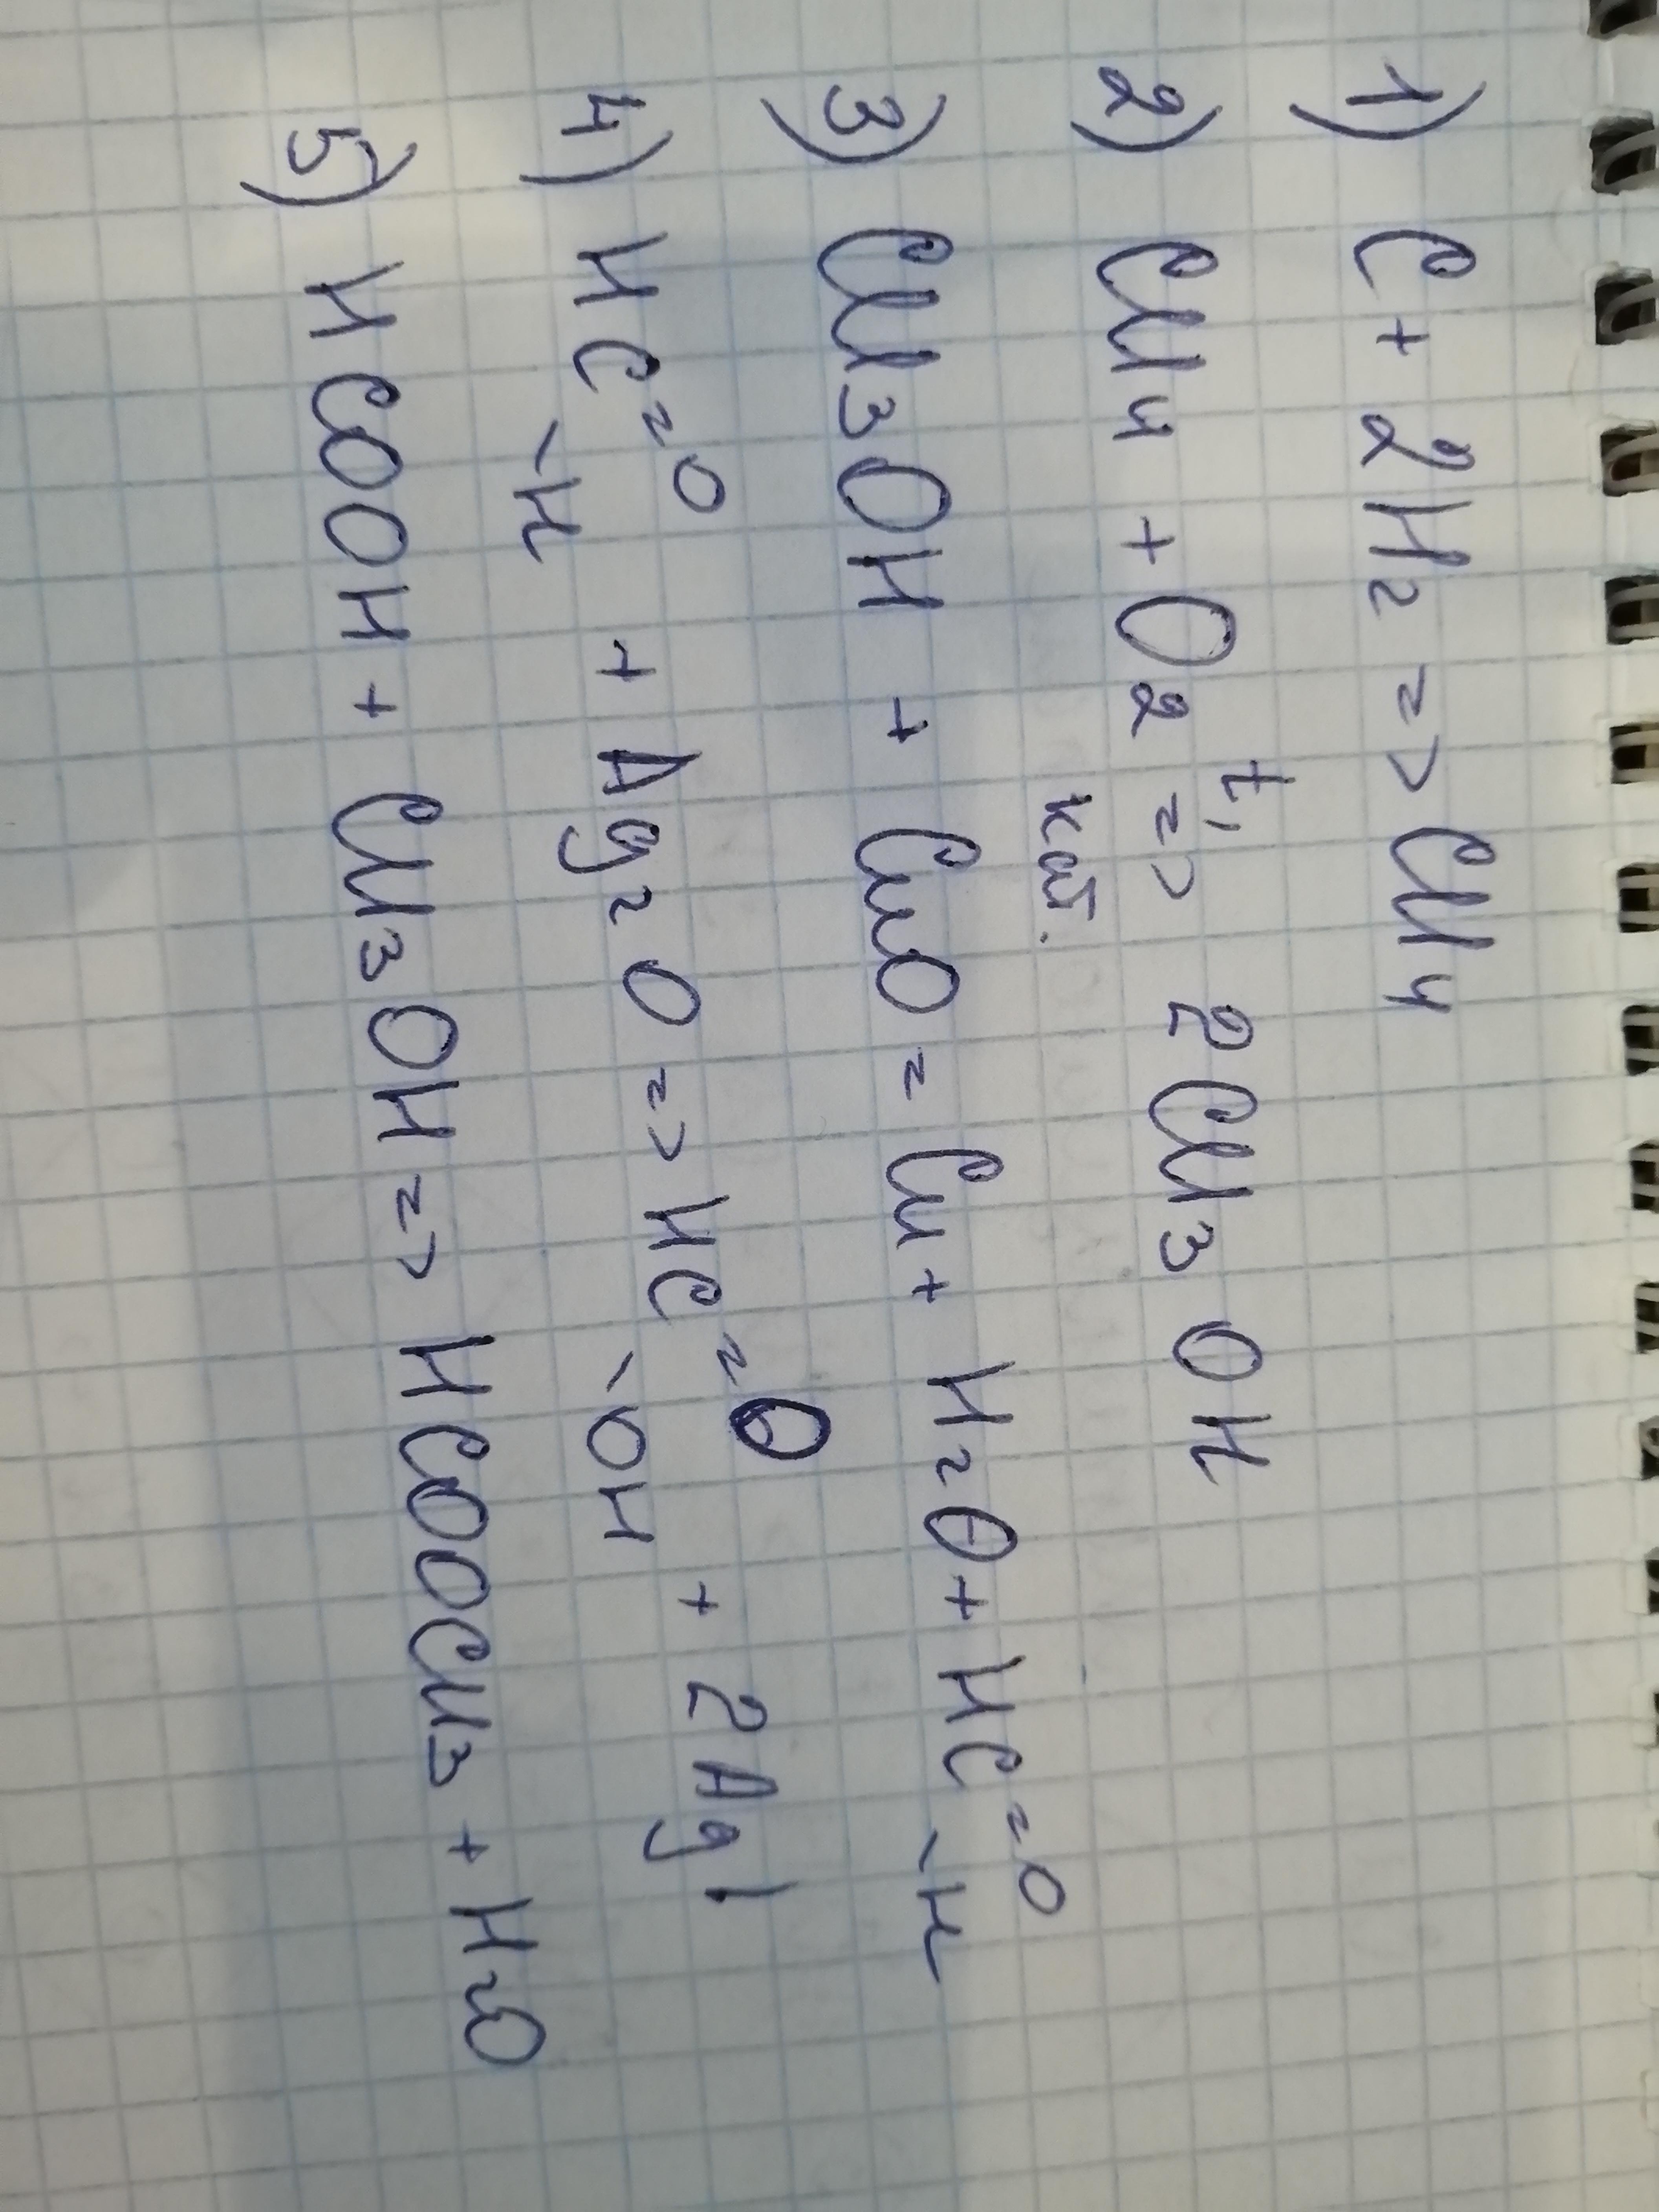 1) C + 2H2 => CH4
2) CH4 + O2 t, => кат. 2CH3OH
3) CH3OH + CuO = Cu + H2O + HC=O -H
4) HC=O -H + Ag2O => HC=O -OH + 2Ag↓
5) HCOOH + CH3OH => HCOOCH3 + H2O